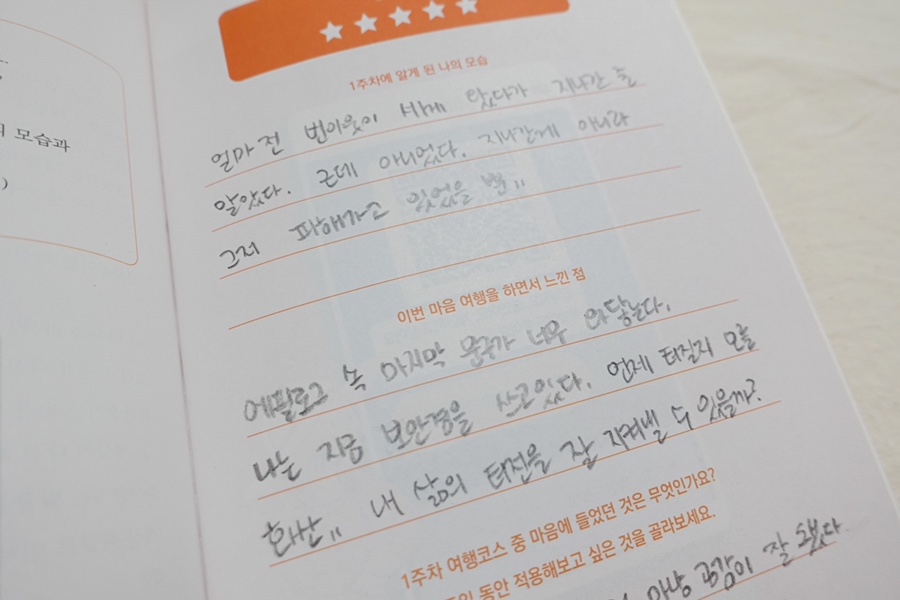 모습과
)
1주차에 알게 된 나의 모습
얼마 전 번아웃이 세게 왔다가 지나간 줄
알았다. 근데 아니었다. 지나간게 아니라
그저 피해가고 있었을 뿐..
이번 마음 여행을 하면서 느낀 점
에필로그 속 마지막 문구가 너무 와닿는다.
나는 지금 보안경을 쓰고있다. 언제 터질지 모를
화산.. 내 삶의 터전을 잘 지켜낼 수 있을까?
1주차 여행코스 중 마음에 들었던 것은 무엇인가요?
동안 적용해보고 싶은 것을 골라보세요.
공감이 잘 됐다.